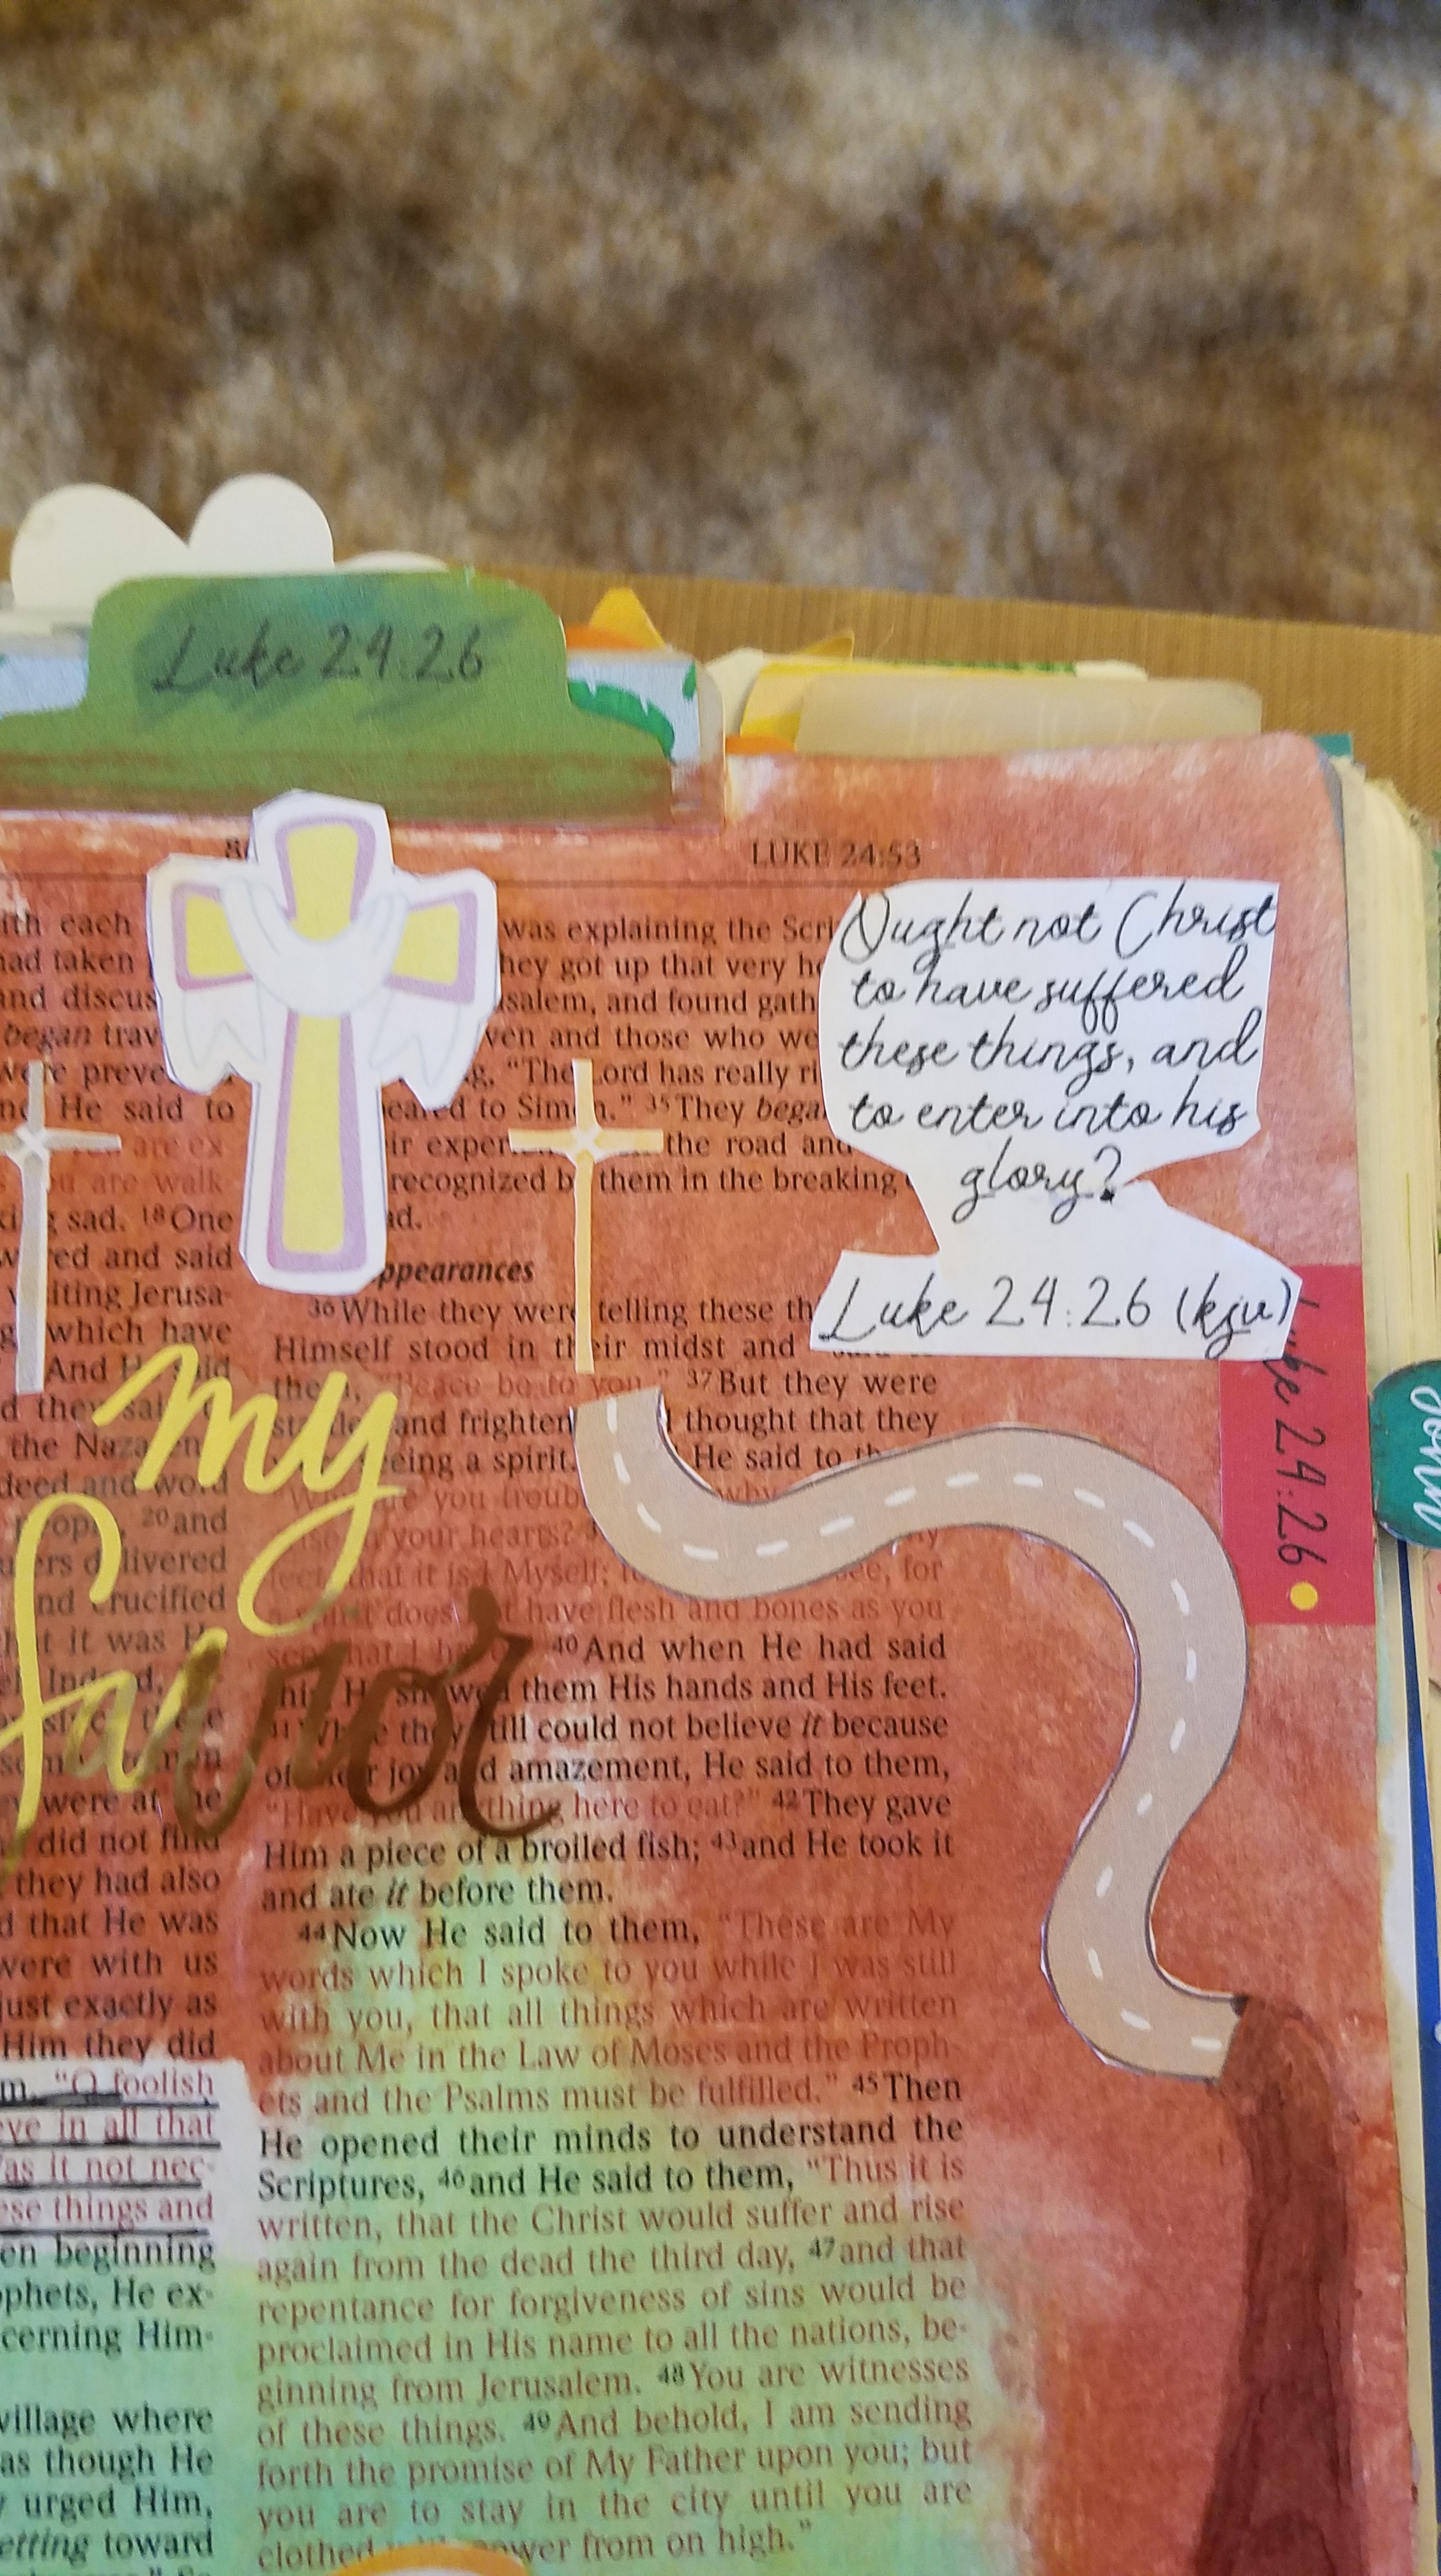 Luke 24:26
LUKE 24:53
Ought not Christ
to have suffered
these things, and
to enter into his
glory?
Luke 24:26 (kjv)
Luke 24:26
John
my
Savior
with each
had taken
and discus
began trav
were preve
And He said to
are ex
you are walk-
sad. 18One
and said
visiting Jerusa-
which have
And He said
the Nazarene
deed and word
20and
delivered
and crucified
that it was He
Indeed,
women
were at the
did not find
they had also
d that He was
were with us
just exactly as
Him they did
"O foolish
in all that
Was it not nec-
these things and
beginning
prophets, He ex-
cerning Him-
village where
as though He
urged Him,
getting toward
was explaining the Scri
they got up that very
and found gath
and those who we
"The Lord has really ri
to Simon." 35They began
exper the road and
recognized by them in the breaking
ppearances
36While they were telling these th
Himself stood in their midst and said to
them, "Peace be to you." 37But they were
and frighten thought that they
seeing a spirit. He said to
you troub why
your hearts?
that it is I Myself; see, for
a spirit does not have flesh and bones as you
see that I have 40And when He had said
this, He showed them His hands and His feet.
41While they still could not believe it because
of their joy and amazement, He said to them,
"Have you anything here to eat?" 42They gave
Him a piece of a broiled fish; 43and He took it
and ate it before them.
44Now He said to them, "These are My
words which I spoke to you while I was still
with you, that all things which are written
about Me in the Law of Moses and the Proph-
ets and the Psalms must be fulfilled." 45Then
He opened their minds to understand the
Scriptures, 46and He said to them, "Thus it is
written, that the Christ would suffer and rise
again from the dead the third day, 47and that
repentance for forgiveness of sins would be
proclaimed in His name to all the nations, be-
ginning from Jerusalem. 48You are witnesses
of these things. 49And behold, I am sending
forth the promise of My Father upon you; but
you are to stay in the city until you are
clothed with power from on high."